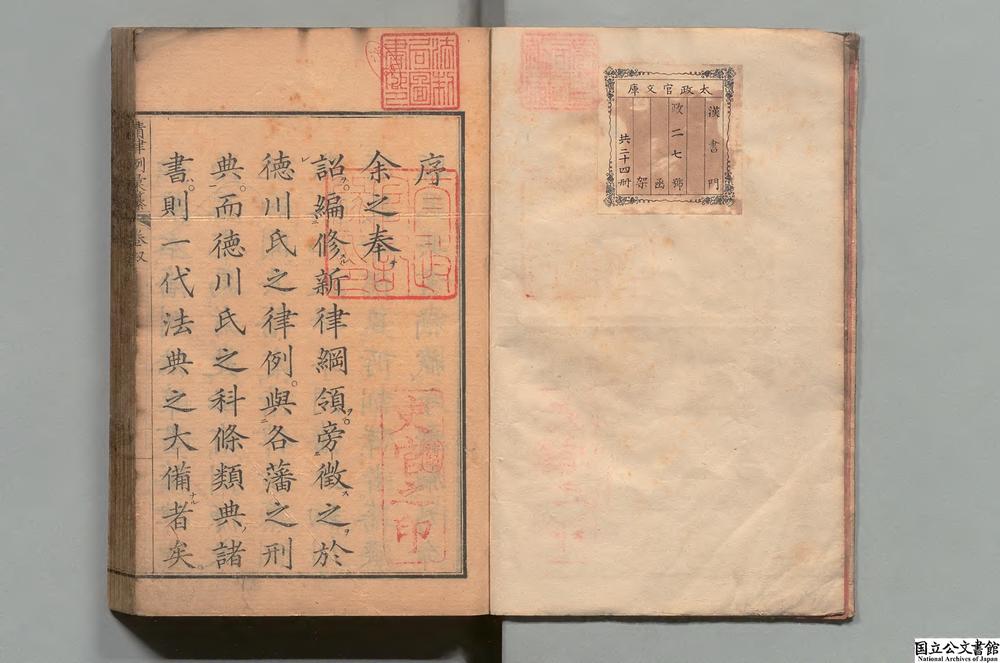 太政官文庫
漢書門
政二七號
函
架
共二十四冊
序
余之奉
詔。編修新律綱領。旁徵之於
徳川氏之律例。與各藩之刑
典。而徳川氏之科條類典諸
書。則一代法典之大備者矣。
律例彙纂
国立公文書館
National Archives of Japan